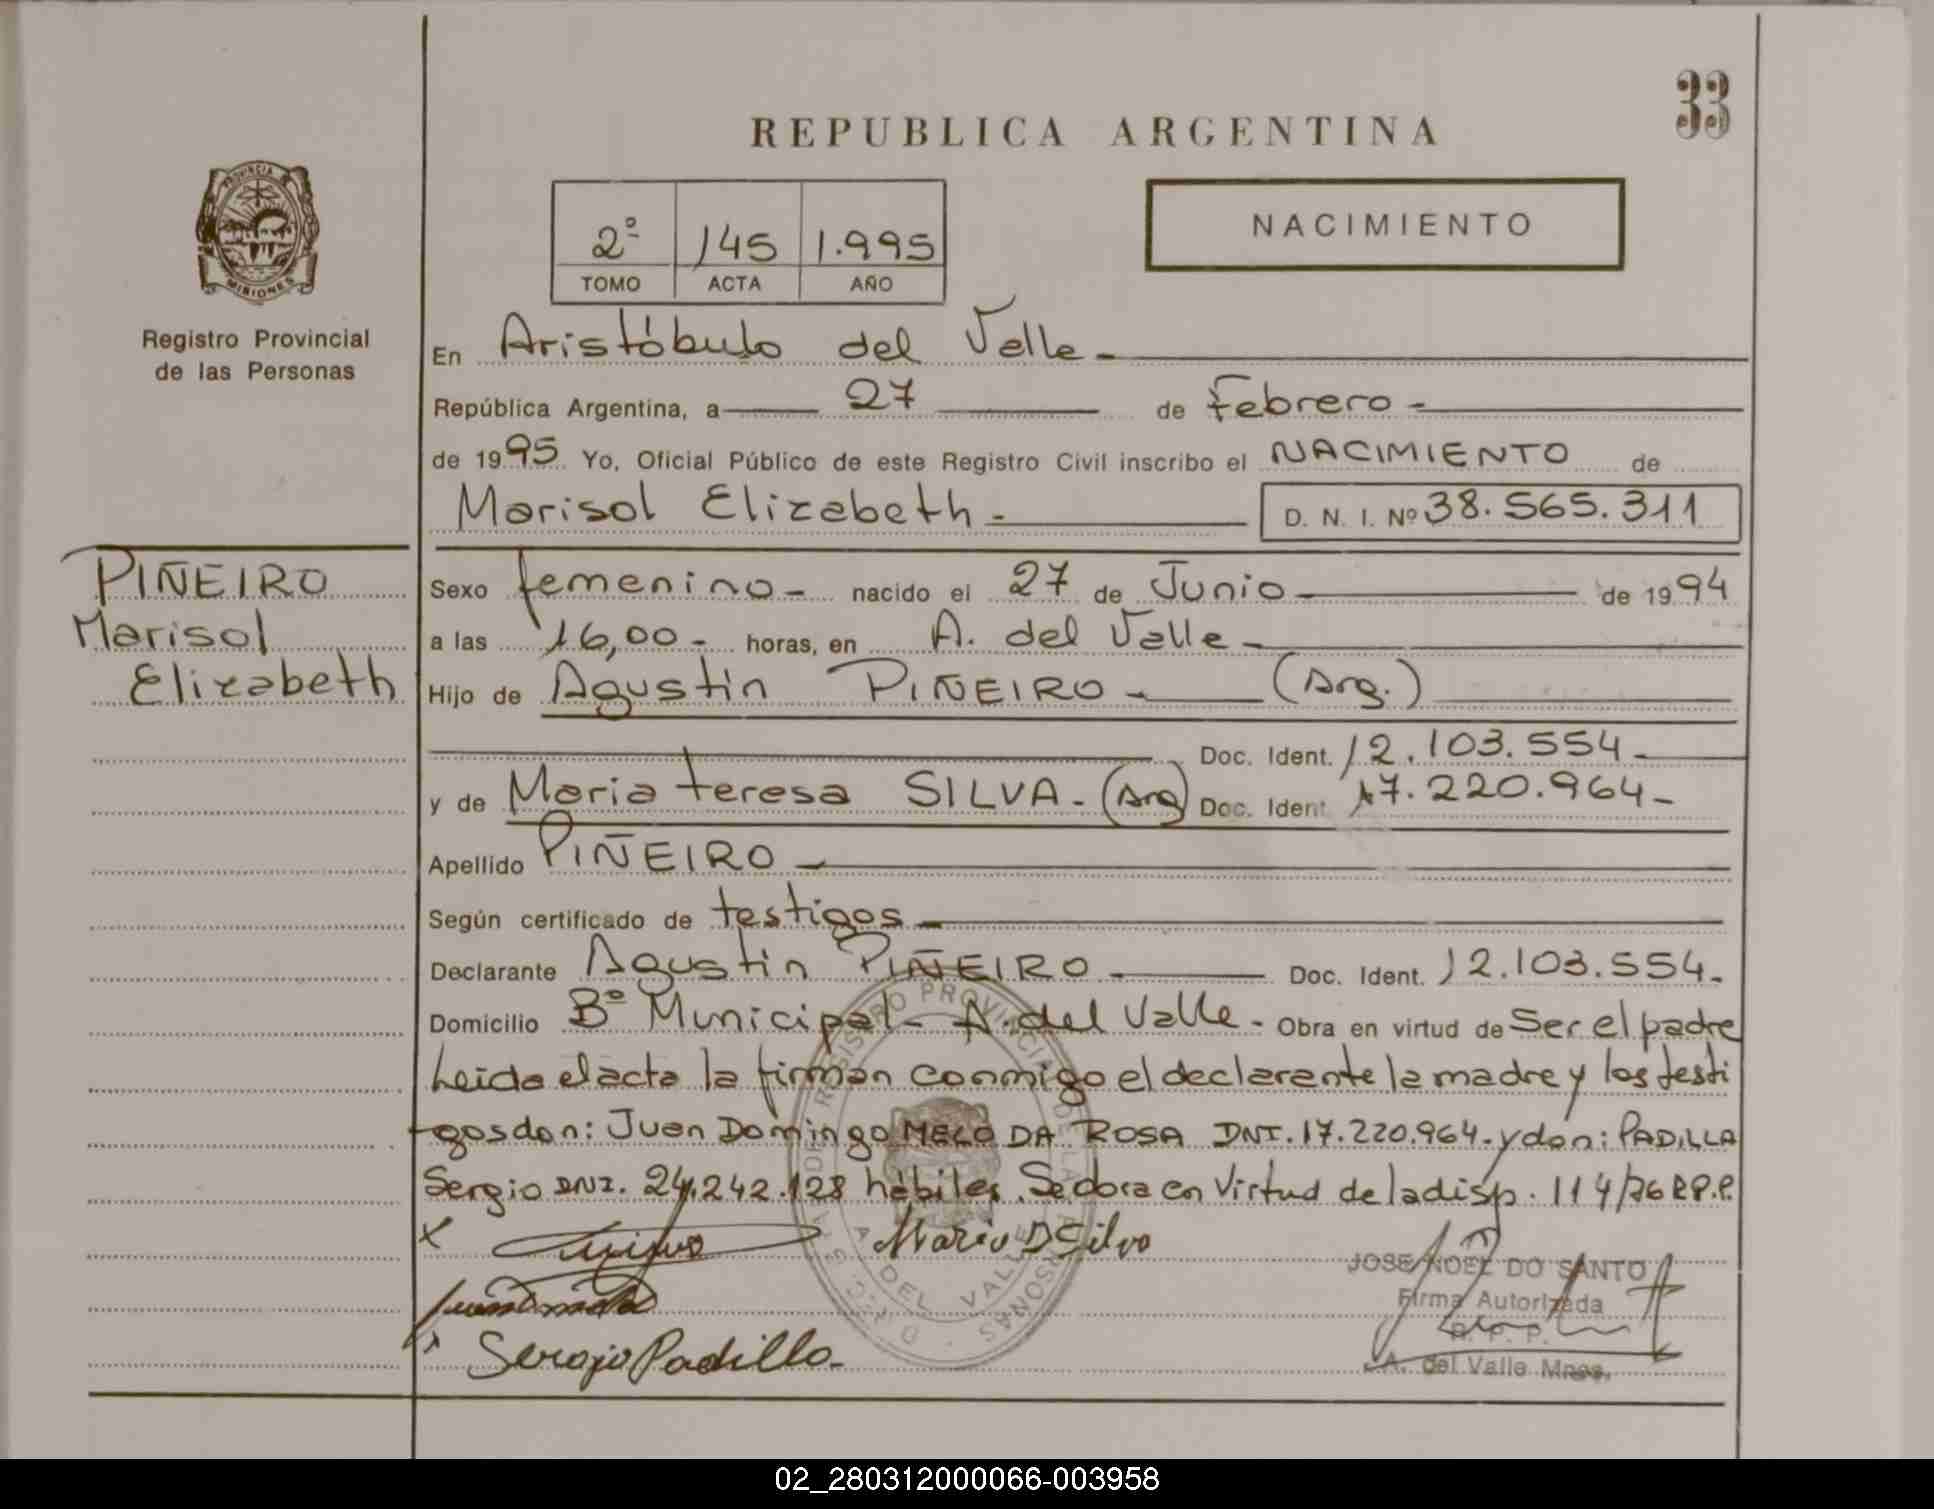 33
REPUBLICA ARGENTINA
PROVINCIA DE
MISIONES
Registro Provincial
de las Personas
2º 145 1.995
TOMO ACTA AÑO
NACIMIENTO
En Aristóbulo del Valle -
República Argentina, a 27 de Febrero -
de 1995 Yo, Oficial Público de este Registro Civil inscribo el NACIMIENTO de
Marisol Elizabeth - D. N. I. Nº 38.565.311
PIÑEIRO
Marisol
Elizabeth
Sexo femenino - nacido el 27 de Junio de 1994
a las 16,00 - horas, en A. del Valle -
Hijo de Agustin PIÑEIRO - (Arg.)
Doc. Ident. 12.103.554 -
y de Maria teresa SILVA. (Arg) Doc. Ident. 17.220.964 -
Apellido PIÑEIRO -
Según certificado de testigos -
Declarante Agustin PIÑEIRO - Doc. Ident. 12.103.554.
Domicilio Bº Municipal - A. del Valle - Obra en virtud de Ser el padre
Leida el acta la firman conmigo el declarante la madre y los testi
gos don: Juan Domingo MELO DA ROSA DNI. 17.220.964 - y don: PADILLA
Sergio DNI. 24.242.128 hábiles. Se obra en Virtud de la disp. 114/76 R.P.P.
X
Maria D Silva
Sergio Padilla
REGISTRO PROVINCIAL DE LAS PERSONAS
A. DEL VALLE
JOSE NOEL DO SANTO
Firma Autorizada
R. P. P.
A. del Valle Mnes.
02_280312000066-003958